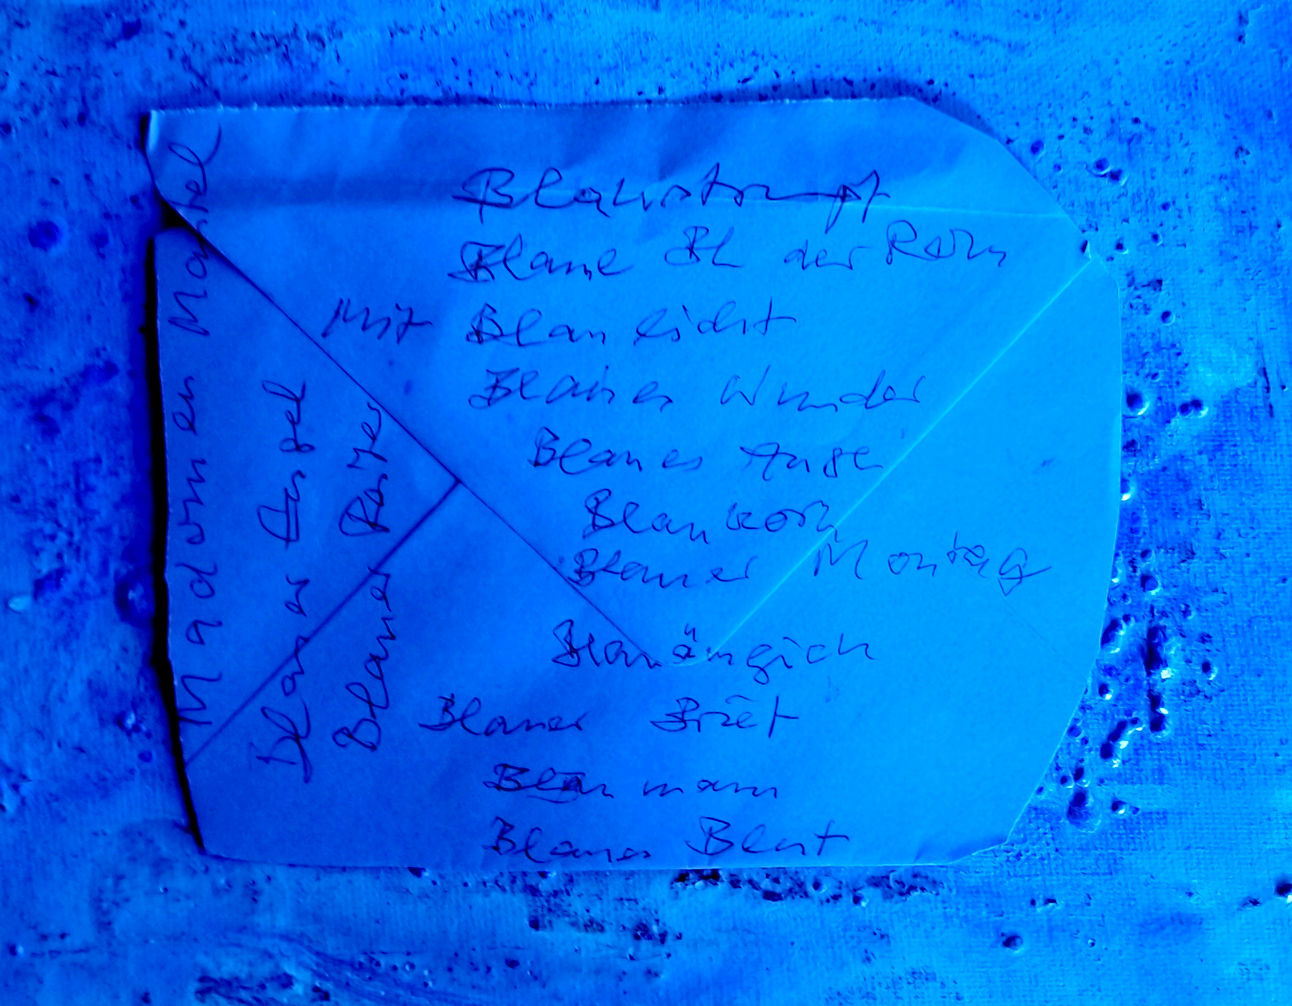 Blaustrumpf
Blaue Bl der Rom
Mit Blaulicht
Blaues Wunder
Blaues Auge
Blaukorn
Blauer Montag
Blauäugich
Blauer Brief
Blaumann
Blaues Blut
Madonnen Mantel
Blauer Engel
Blauer Reiter